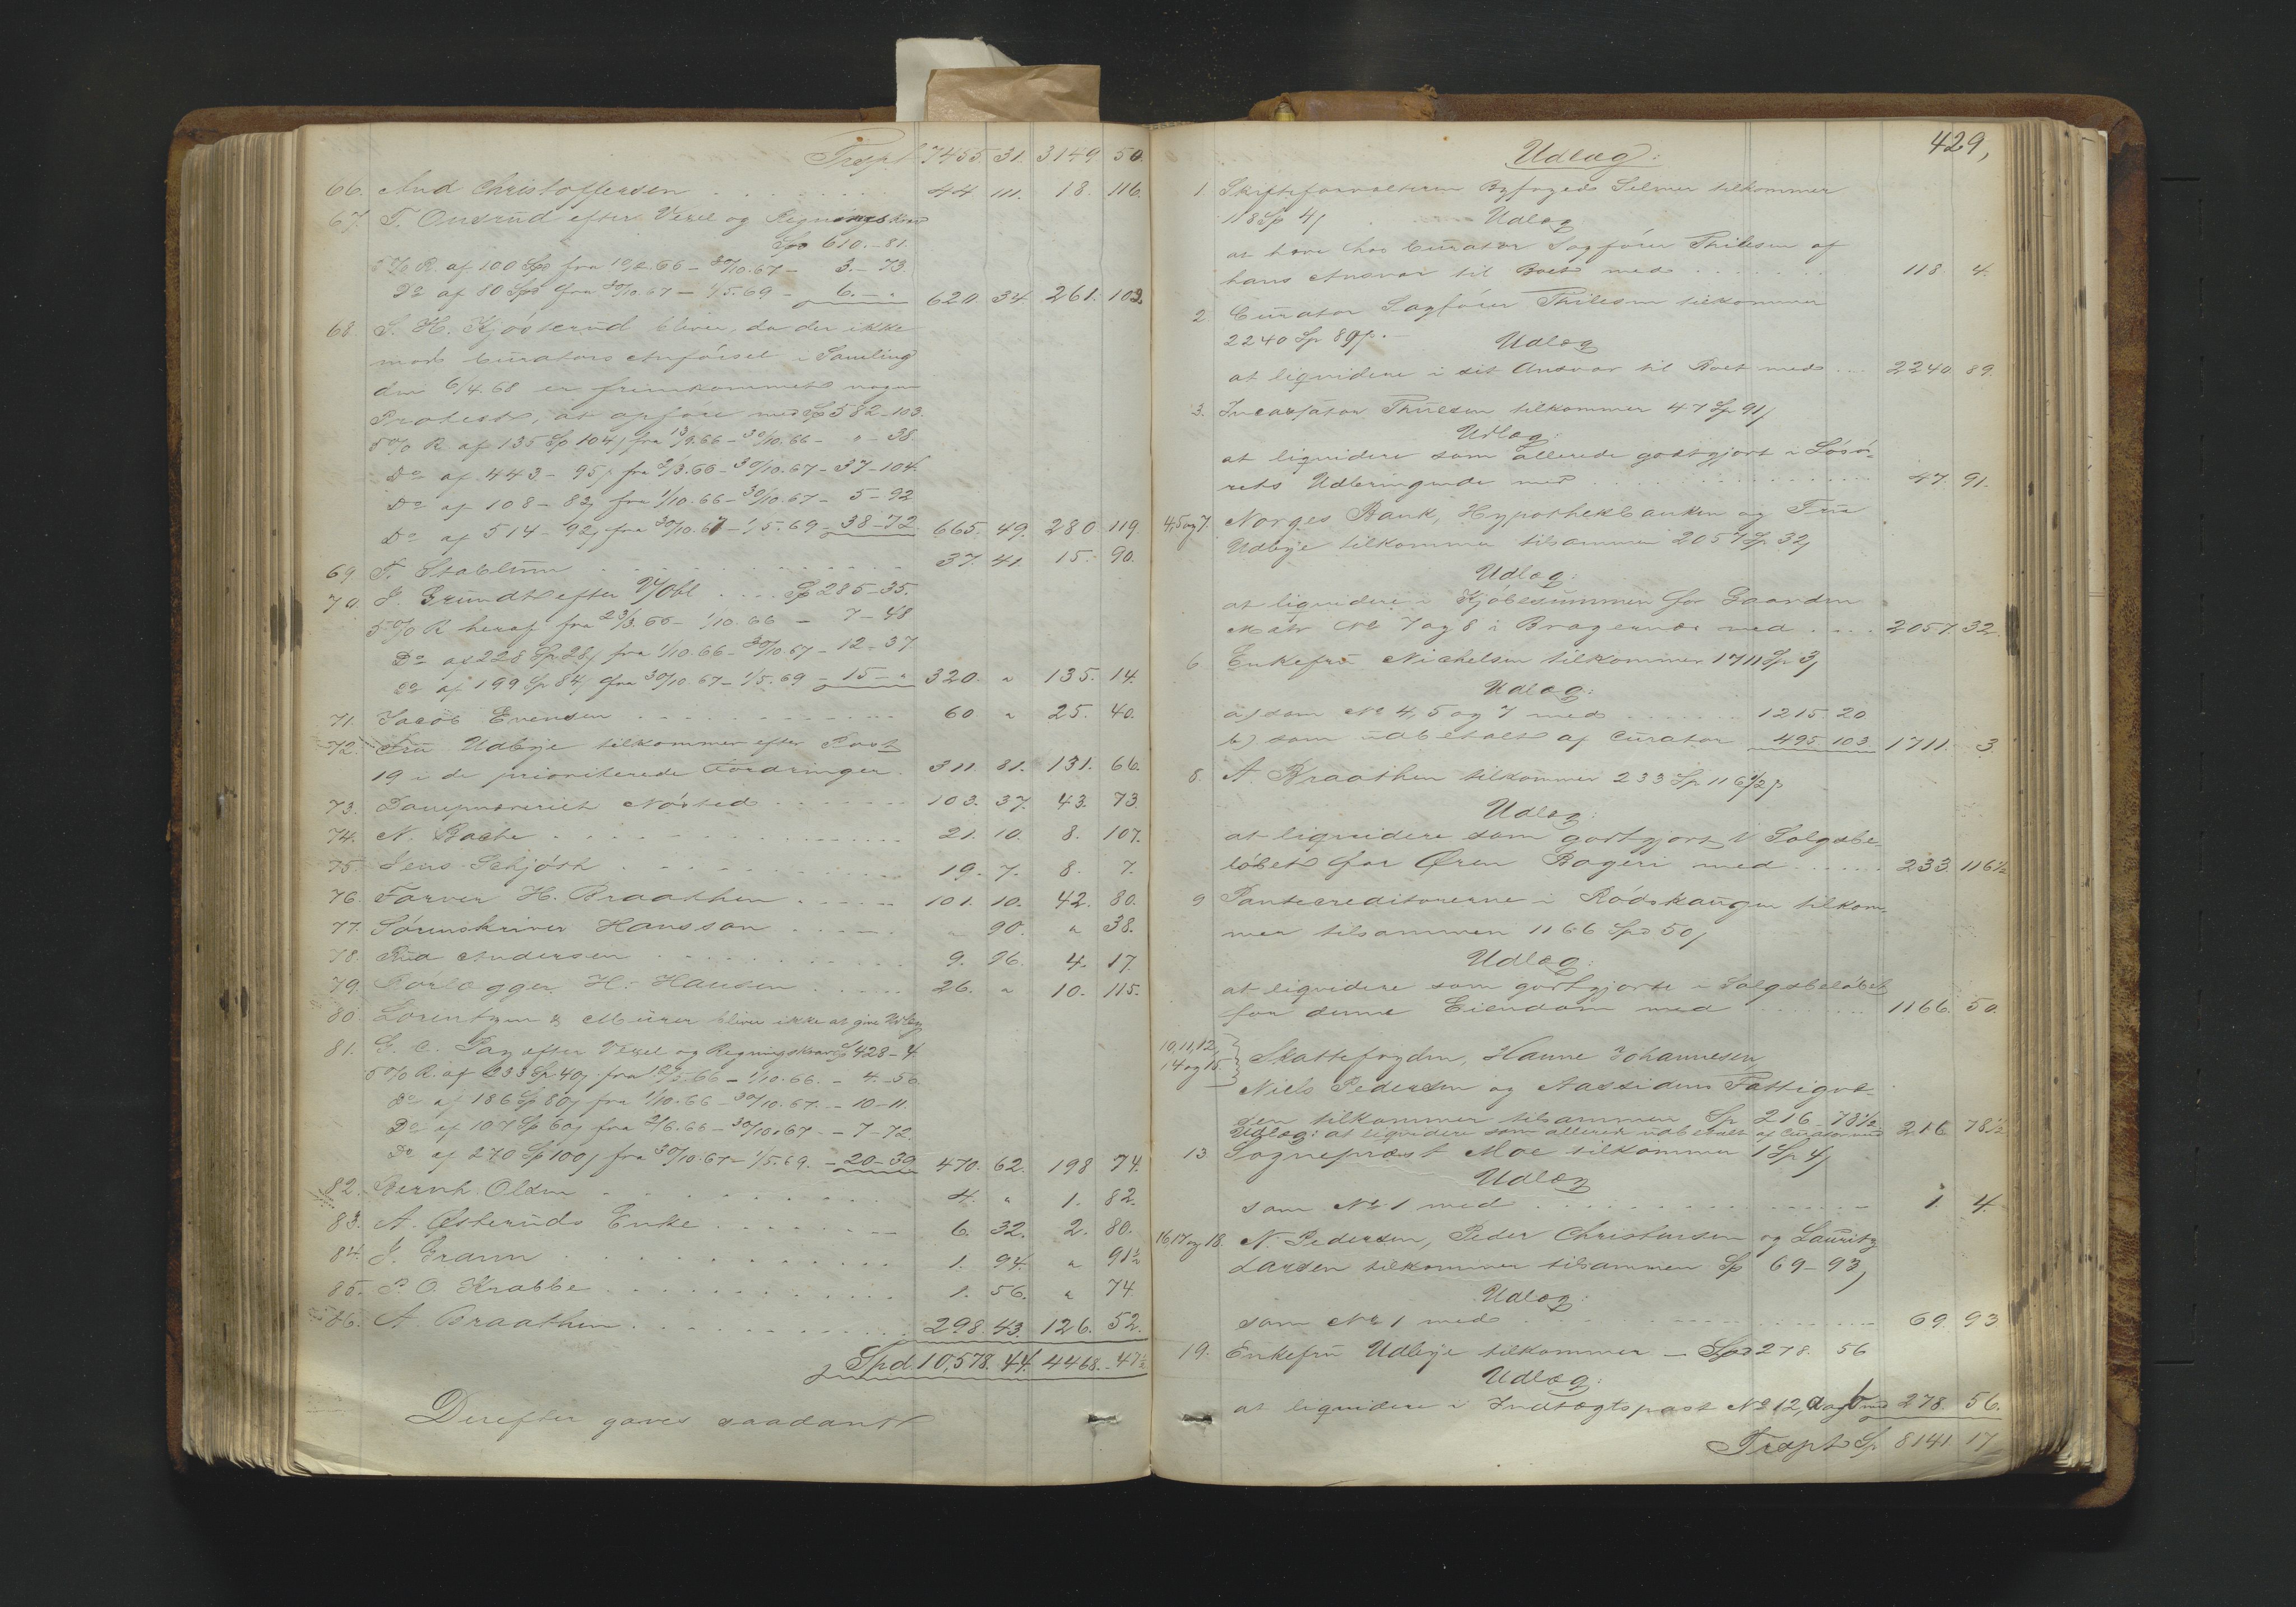 Trspt. 7455. 31. 3149 50.
66. And Christoffersen . . . . . . 44. 111. 18. 116.
67. T. Onsrud efter Vexel og Regningskrav
Spd 610. - 81.
5 % R. af 100 Spd fra - 30/10.67 - 3. - 73.
Do af 80 Spd fra 30/10.67 - 1/5.69 - 6. - " 620. 34. 261. 102.
68. S. H. Kjøsterud bliver, da der ikke
mod Curators Anførsel i Samling
den 6/4.68 er fremkommet nogen
Protest, at opføre med Sp 582 - 103.
5 % R. af 135 Sp 104 fra 13/9.66 - 30/10.66 - " - 38.
Do af 443 - 95 fra 2/3.66 - 30/10.67 - 37 - 104.
Do af 108 - 82 fra 1/10.66 - 30/10.67 - 5 - 92
Do af 514 - 92 fra 30/10.67 - 1/5.69 - 38 - 72. 665. 49. 280. 119.
69. T. Stablum . . . . . . 37. 41. 15. 90.
70. J. Grundt efter Obl . . . . Sp 285 - 35.
5 % R heraf fra 23/3.66 - 1/10.66 - 7 - 48
Do af 228 Sp 28 fra 1/10.66 - 30/10.67 - 12 - 37
Do af 199 Sp 84 fra 30/10.67 - 1/5.69 - 15 - " 320. " 135. 14.
71. Jacob Evensen . . . . . . 60 " 25. 40.
72. Fru Udbye tilkommer efter Post
19 i de prioriterede Fordringer. 311. 81. 131. 66.
73. Dampmøllen Nøsted . . . . . . 103. 37. 43. 73
74. N. Bache . . . . . . 21. 10. 8. 107.
75. Jens Schjøth . . . . . . 19. 7. 8. 7.
76. Farver H. Braathen . . . . . . 101. 10. 42. 80.
77. Sorenskriver Hansson . . . . . . " 90. " 38.
78. Andersen . . . . . . 9. 96. 4. 17.
79. Forlægger H. Hansen . . . . . . 26. " 10. 115.
80. Lorentzen & Meürer bliver ikke at give Udlæg
81. G. C. Pay efter Vexel og Regningskrav Sp 428 - 4.
5 % R. af 233 Sp 40 fra - 1/10.66. - 4. - 56.
Do af 186 Sp 80 fra 1/10.66 - 30/10.67. - 10 - 11.
Do af 107 Sp 60 fra 2/6.66 - 30/10.67 - 7 - 72.
Do af 270 Sp 100 fra 30/10.67 - 1/5.69. - 20 - 39 470. 62. 198 74.
82. Bernh. Olsen . . . . . . 4. " 1. 82.
83. A. Østeruds Enke . . . . . . 6. 32. 2. 80.
84. J. Gramm . . . . . . 1. 94. " 91 1/2
85. P. O. Krabbe . . . . . . 1. 56. " 74
86. A. Braathen . . . . . . 298. 43. 126. 52.
Spd. 10,578. 44. 4468. 47 1/2
Derefter gaves saadant
429,
Udlæg:
1. Skifteforvalteren Byfoged Selmer tilkommer
118 Sp 4
Udlæg
at have hos Curator Sagfører Thilesen af
hans Ansvar til Boet med . . . . . . 118. 4.
2. Curator Sagfører Thilesen tilkommer
2240 Sp 89. -
Udlæg
at liqvidere i sit Ansvar til Boet med . . . 2240. 89.
3. Incassator Thuesen tilkommer 47 Sp 91
Udlæg:
at liqvidere som allerede godtgjort i Løsø-
rets Udbringende med . . . . . . 47. 91.
4, 5 og 7. Norges Bank, Hypothekbanken og Frue
Udbye tilkommer tilsammen 2057 Sp 32
Udlæg:
at liqvidere i Kjøbesummen for Gaarden
Matr No 7 og 8 i Bragernæs med . . . . 2057. 32.
6. Enkefru Nichelsen tilkommer 1711 Sp 3
Udlæg:
a) som No 4, 5 og 7 med . . . . . . 1215. 20
b) som udbetalt af Curator 495 103 1711. 3.
8. A. Braathen tilkommer 233 Sp 116 1/2
Udlæg:
at liqvidere som godtgjort i Salgsbe-
løbet for Øren Bageri med . . . . . . 233. 116 1/2
9 Pantecreditorerne i Rødskaugen tilkom-
mer tilsammen 1166 Spd 50
Udlæg:
at liqvidere som godtgjort i Salgsbeløbet
for denne Eiendom med . . . . . . 1166. 50.
10, 11, 12, 14 og 15. Skattefogden, Hanne Johannesen,
Niels Pedersen og Aassidens Fattigvæ-
sen tilkommer tilsammen Sp 216 - 78 1/2.
Udlæg: at liqvidere som allerede udbetalt af Curator med 216 78 1/2
13. Sogneprest Moe tilkommer 1 Sp 4
Udlæg
som No 1 med . . . . . . 1. 4.
16, 17 og 18. N. Pedersen, Peder Christensen og Lauritz
Larsen tilkommer tilsammen Sp 69 - 93
Udlæg:
som No 1 med . . . . . . 69. 93
19. Enkefru Udbye tilkommer - Spd 278. 56
Udlæg:
at liqvidere i Indtægtspost No 12, a og b med 278. 56.
Trspt Sp 8141 17